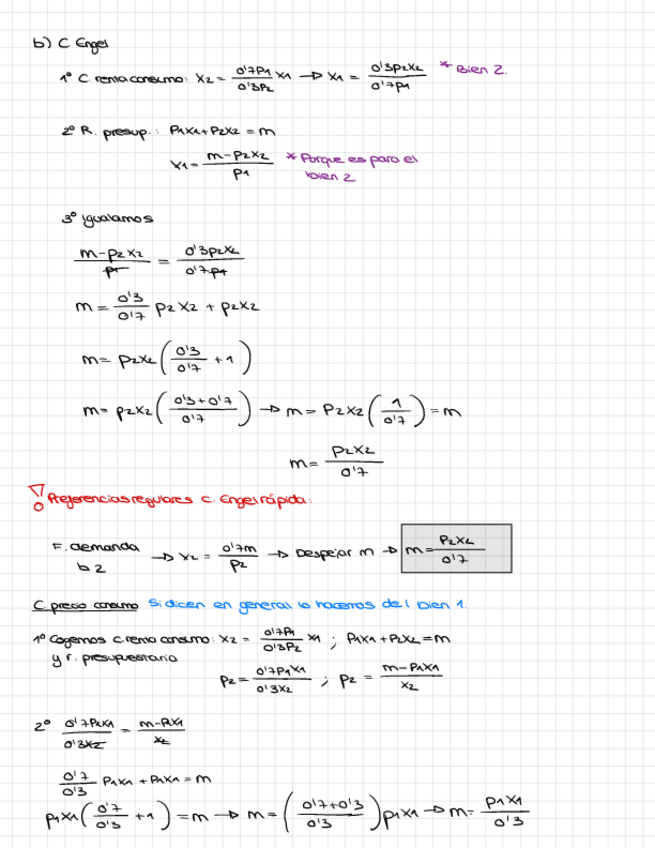 b) C Engel
1º C. renta consumo: x2 = 0'7p1/0'3p2 x1 → x1 = 0'3p2x2/0'7p1 * Bien 2.
2º R. presup.: p1x1+p2x2 = m
x1 = m-p2x2/p1 * Porque es para el
bien 2
3º Igualamos
m-p2x2/p1 = 0'3p2x2/0'7p1
m = 0'3/0'7 p2x2 + p2x2
m = p2x2 (0'3/0'7 + 1)
m = p2x2 (0'3+0'7/0'7) → m = p2x2 (1/0'7) = m
m = p2x2/0'7
Preferencias regulares C. Engel rápida:
F. demanda
b2 → x2 = 0'7m/p2 → Despejar m → m = p2x2/0'7
C. precio consumo Si dicen en general lo hacemos del bien 1.
1º Cogemos C. renta consumo: x2 = 0'7p1/0'3p2 x1 ; p1x1+p2x2=m
y r. presupuestaria
p2 = 0'7p1x1/0'3x2 ; p2 = m-p1x1/x2
2º 0'7p1x1/0'3x2 = m-p1x1/x2
0'7/0'3 p1x1 + p1x1 = m
p1x1 (0'7/0'3 + 1) = m → m = (0'7+0'3/0'3) p1x1 → m = p1x1/0'3